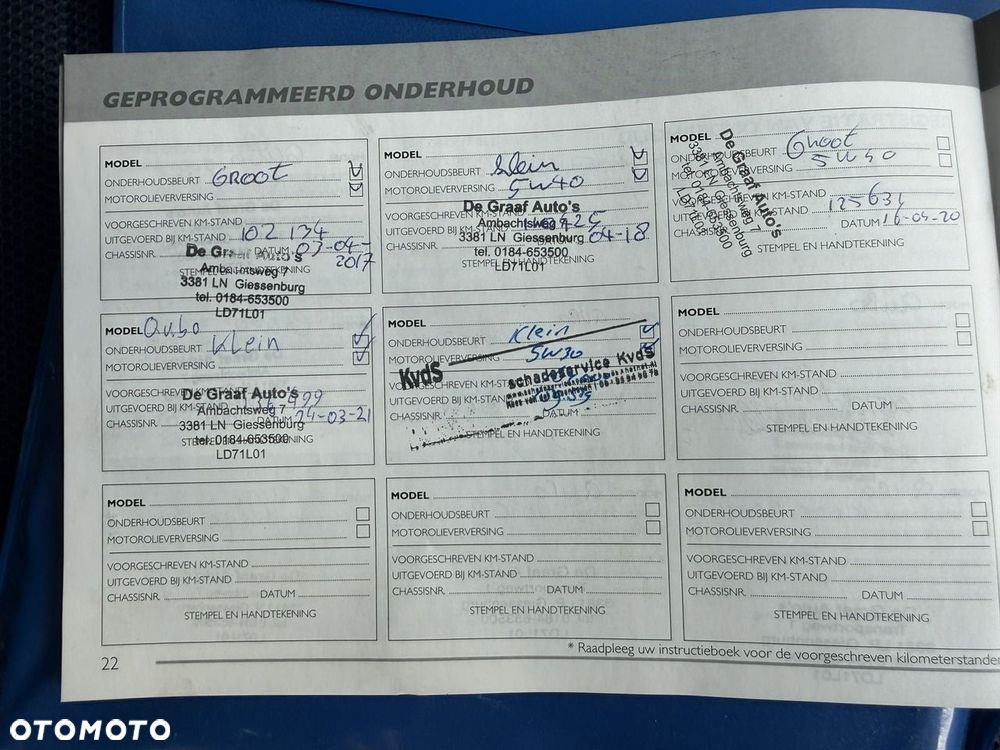 GEPROGRAMMEERD ONDERHOUD
MODEL
ONDERHOUDSBEURT GROOT
MOTOROLIEVERVERSING
VOORGESCHREVEN KM-STAND
UITGEVOERD BIJ KM-STAND 102 134
CHASSISNR. DATUM 03-04-2017
De Graaf Auto's
Ambachtsweg 7
STEMPEL EN HANDTEKENING
3381 LN Giessenburg
tel. 0184-653500
LD71L01
MODEL
ONDERHOUDSBEURT Klein
MOTOROLIEVERVERSING 5W40
De Graaf Auto's
VOORGESCHREVEN KM-STAND
Ambachtsweg 7
UITGEVOERD BIJ KM-STAND
3381 LN Giessenburg
CHASSISNR. 04-18
tel. 0184-653500
STEMPEL EN HANDTEKENING
LD71L01
MODEL
ONDERHOUDSBEURT Groot
MOTOROLIEVERVERSING 5W40
VOORGESCHREVEN KM-STAND
UITGEVOERD BIJ KM-STAND 125631
CHASSISNR. DATUM 16-04-20
STEMPEL EN HANDTEKENING
De Graaf Auto's
Ambachtsweg 7
3381 LN Giessenburg
tel. 0184-653500
LD71L01
MODEL Qubo
ONDERHOUDSBEURT Klein
MOTOROLIEVERVERSING
VOORGESCHREVEN KM-STAND
De Graaf Auto's
UITGEVOERD BIJ KM-STAND
Ambachtsweg 7
CHASSISNR. DATUM 24-03-21
3381 LN Giessenburg
STEMPEL EN HANDTEKENING
tel. 0184-653500
LD71L01
MODEL
ONDERHOUDSBEURT Klein
MOTOROLIEVERVERSING 5W30
KvdS schadeservice KvdS
VOORGESCHREVEN KM-STAND
UITGEVOERD BIJ KM-STAND
CHASSISNR. DATUM
STEMPEL EN HANDTEKENING
MODEL
ONDERHOUDSBEURT
MOTOROLIEVERVERSING
VOORGESCHREVEN KM-STAND
UITGEVOERD BIJ KM-STAND
CHASSISNR. DATUM
STEMPEL EN HANDTEKENING
MODEL
ONDERHOUDSBEURT
MOTOROLIEVERVERSING
VOORGESCHREVEN KM-STAND
UITGEVOERD BIJ KM-STAND
CHASSISNR. DATUM
STEMPEL EN HANDTEKENING
MODEL
ONDERHOUDSBEURT
MOTOROLIEVERVERSING
VOORGESCHREVEN KM-STAND
UITGEVOERD BIJ KM-STAND
CHASSISNR. DATUM
STEMPEL EN HANDTEKENING
MODEL
ONDERHOUDSBEURT
MOTOROLIEVERVERSING
VOORGESCHREVEN KM-STAND
UITGEVOERD BIJ KM-STAND
CHASSISNR. DATUM
STEMPEL EN HANDTEKENING
22
* Raadpleeg uw instructieboek voor de voorgeschreven kilometerstanden
OTOMOTO